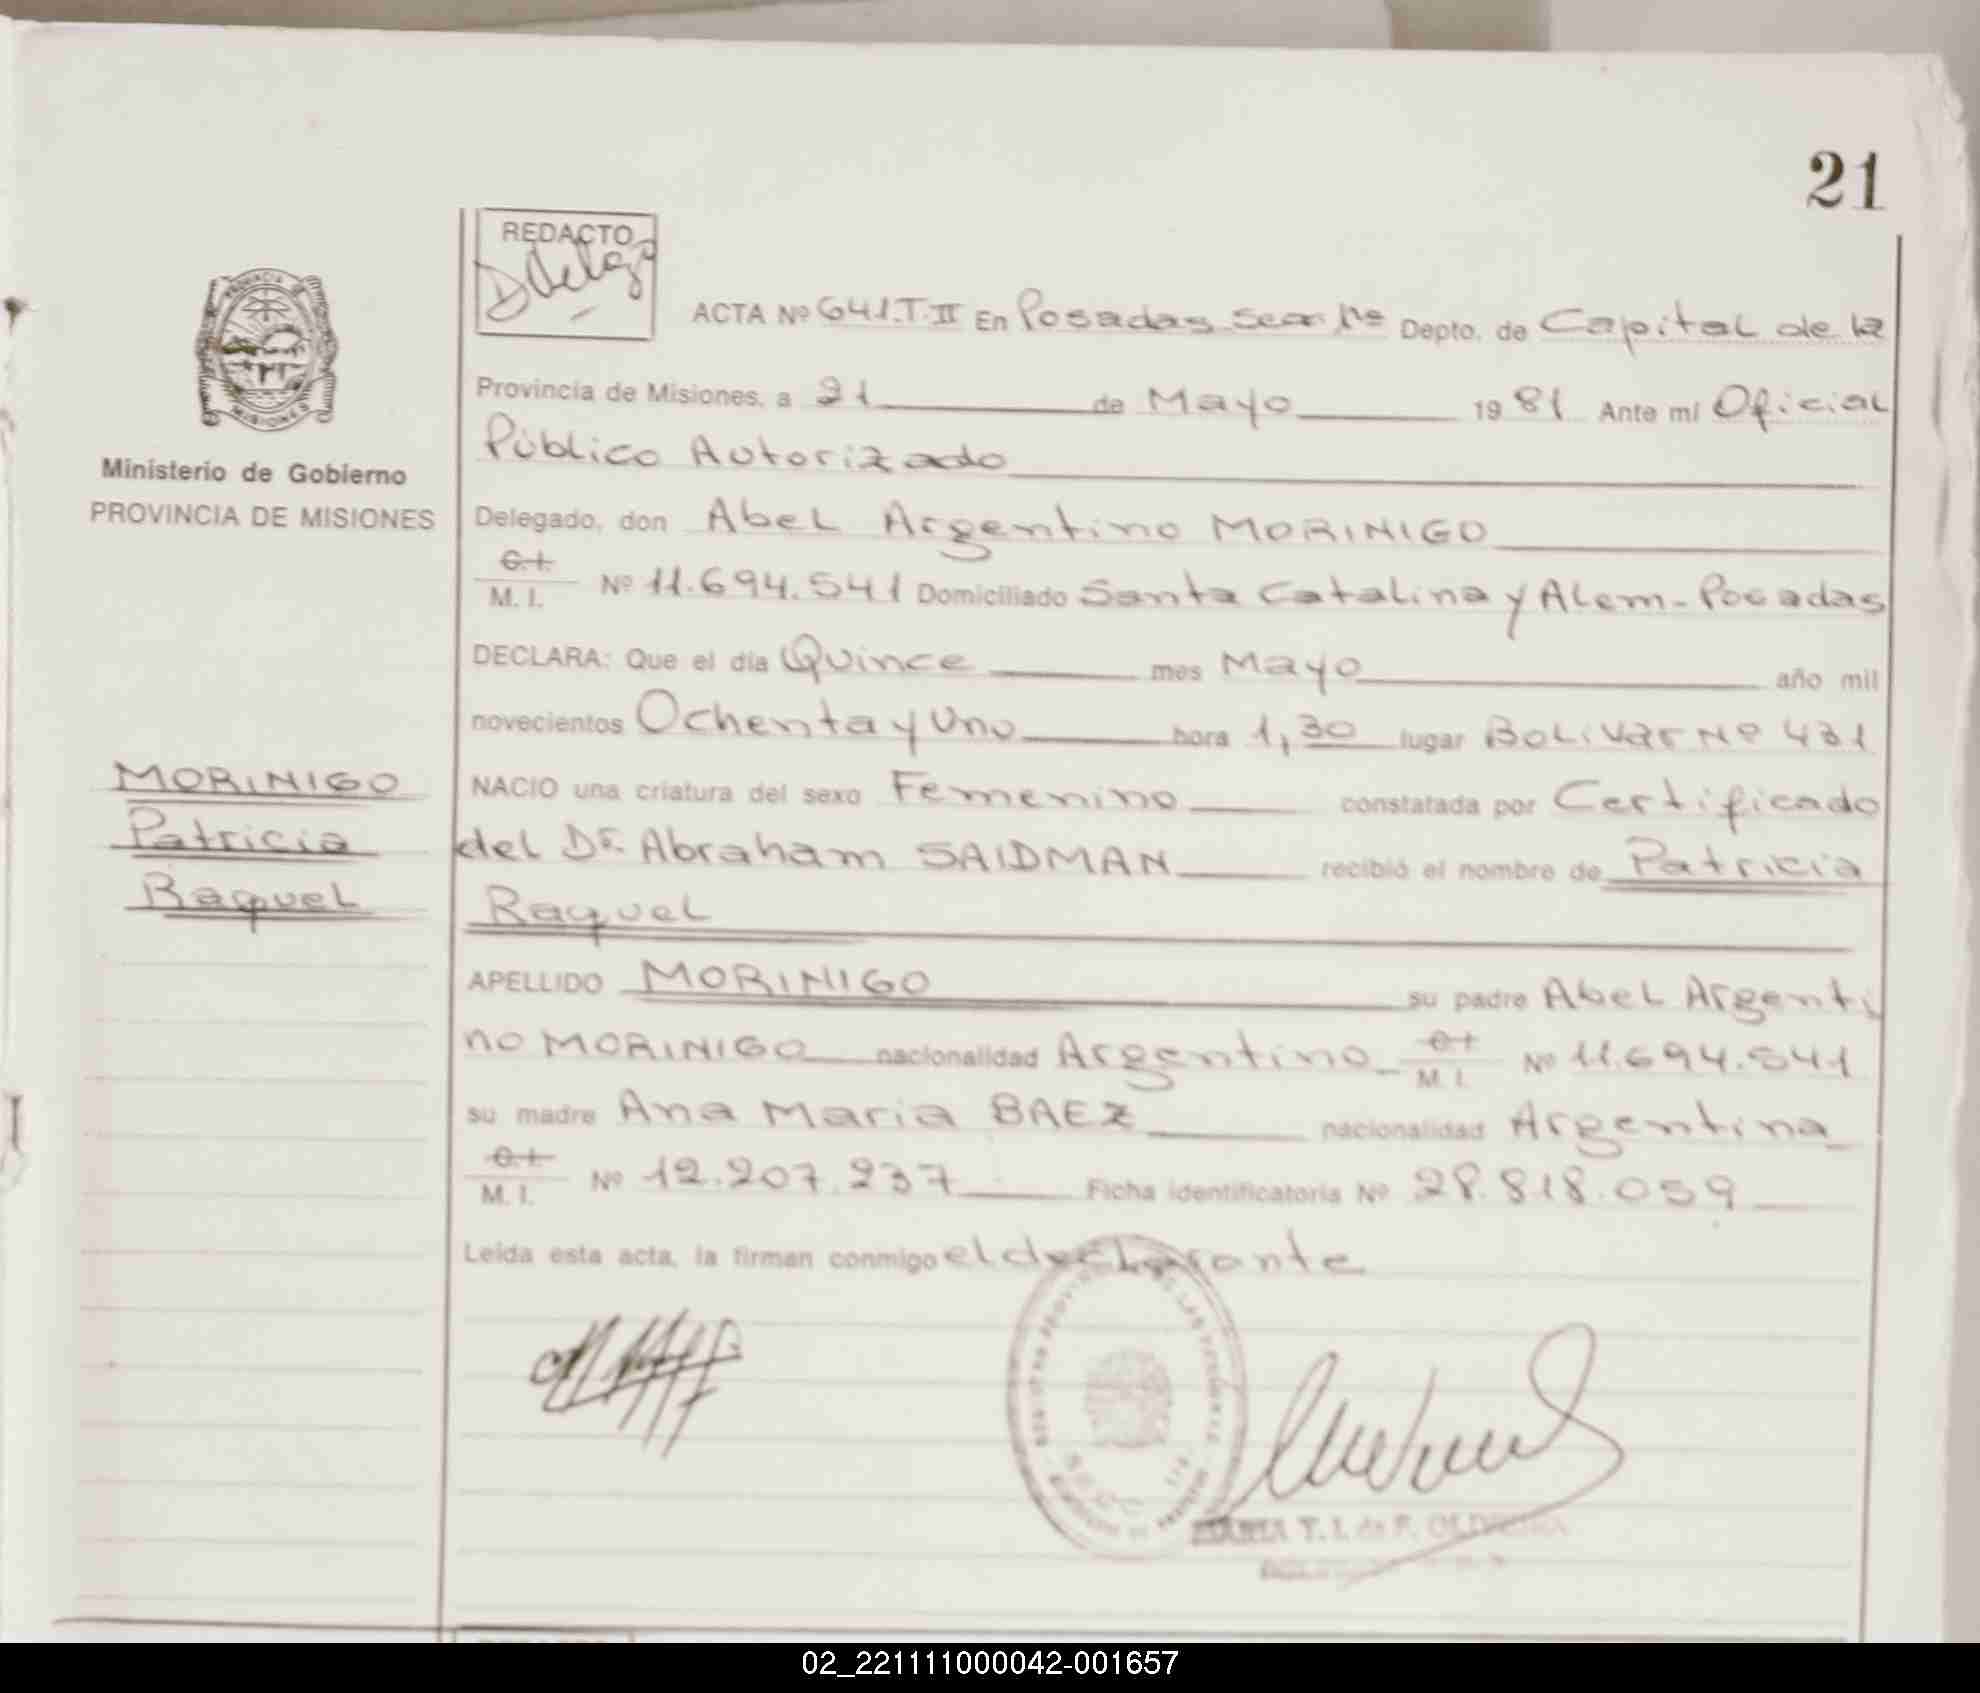 21
REDACTO
ACTA Nº 641.T.II En Posadas Secc 1ª Depto. de Capital de la
Provincia de Misiones, a 21 de Mayo 1981 Ante mi Oficial
Público Autorizado
Ministerio de Gobierno
PROVINCIA DE MISIONES
Delegado, don Abel Argentino MORINIGO
C.I.
M. I. Nº 11.694.541 Domiciliado Santa Catalina y Alem - Posadas
DECLARA: Que el día Quince mes Mayo año mil
novecientos Ochenta y Uno hora 1,30 lugar Bolivar Nº 431
MORINIGO
Patricia
Raquel
NACIO una criatura del sexo Femenino constatada por Certificado
del Dr. Abraham SAIDMAN recibió el nombre de Patricia
Raquel
APELLIDO MORINIGO su padre Abel Argenti
no MORINIGO nacionalidad Argentino C.I.
M. I. Nº 11.694.541
su madre Ana Maria BAEZ nacionalidad Argentina
C.I.
M. I. Nº 12.207.237 Ficha identificatoria Nº 28.818.059
Leída esta acta, la firman conmigo el declarante
MARIA T. I. de F. OLIVEIRA
02_221111000042-001657